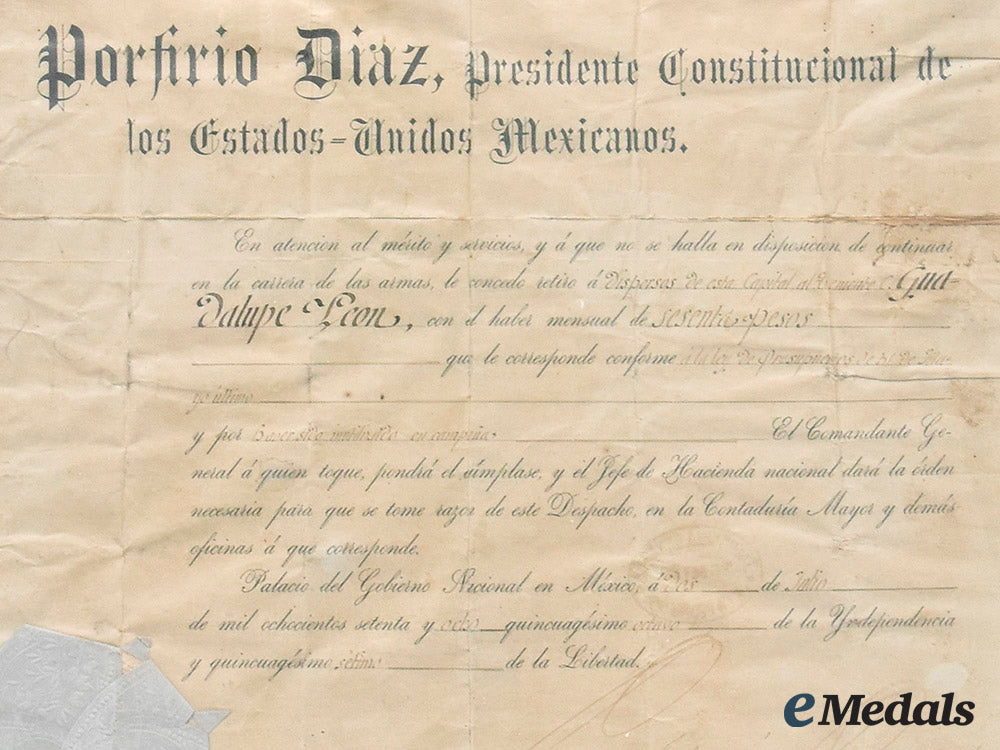 Porfirio Diaz, Presidente Constitucional de
los Estados=Unidos Mexicanos.
En atencion al mérito y servicios, y á que no se halla en disposicion de continuar
en la carrera de las armas, le concedo retiro á Dispersos de esta Capital al Teniente C. Gua-
dalupe Leon, con el haber mensual de sesenta pesos
que le corresponde conforme á la ley de Presupuestos de 31 de Ma-
yo último
y por haberse inutilizado en campaña. El Comandante Ge-
neral á quien toque, pondrá el cúmplase, y el Jefe de Hacienda nacional dará la órden
necesaria para que se tome razor de este Despacho, en la Contaduría Mayor y demás
oficinas á que corresponde.
Palacio del Gobierno Nacional en México, á Dos de Julio
de mil ochocientos setenta y ocho quincuagésimo octavo de la Yndependencia
y quincuagésimo sétimo de la Libertad.
eMedals